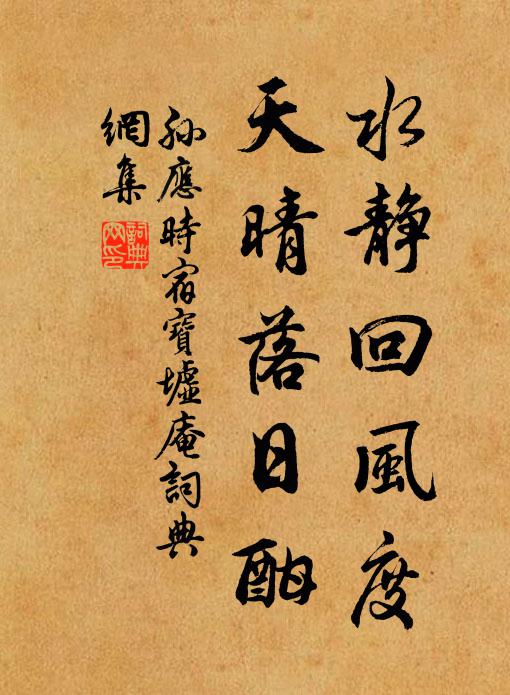 水靜回風度
天晴落日酣
孫應時宿寶墟庵詞典
網集
詞典
网印